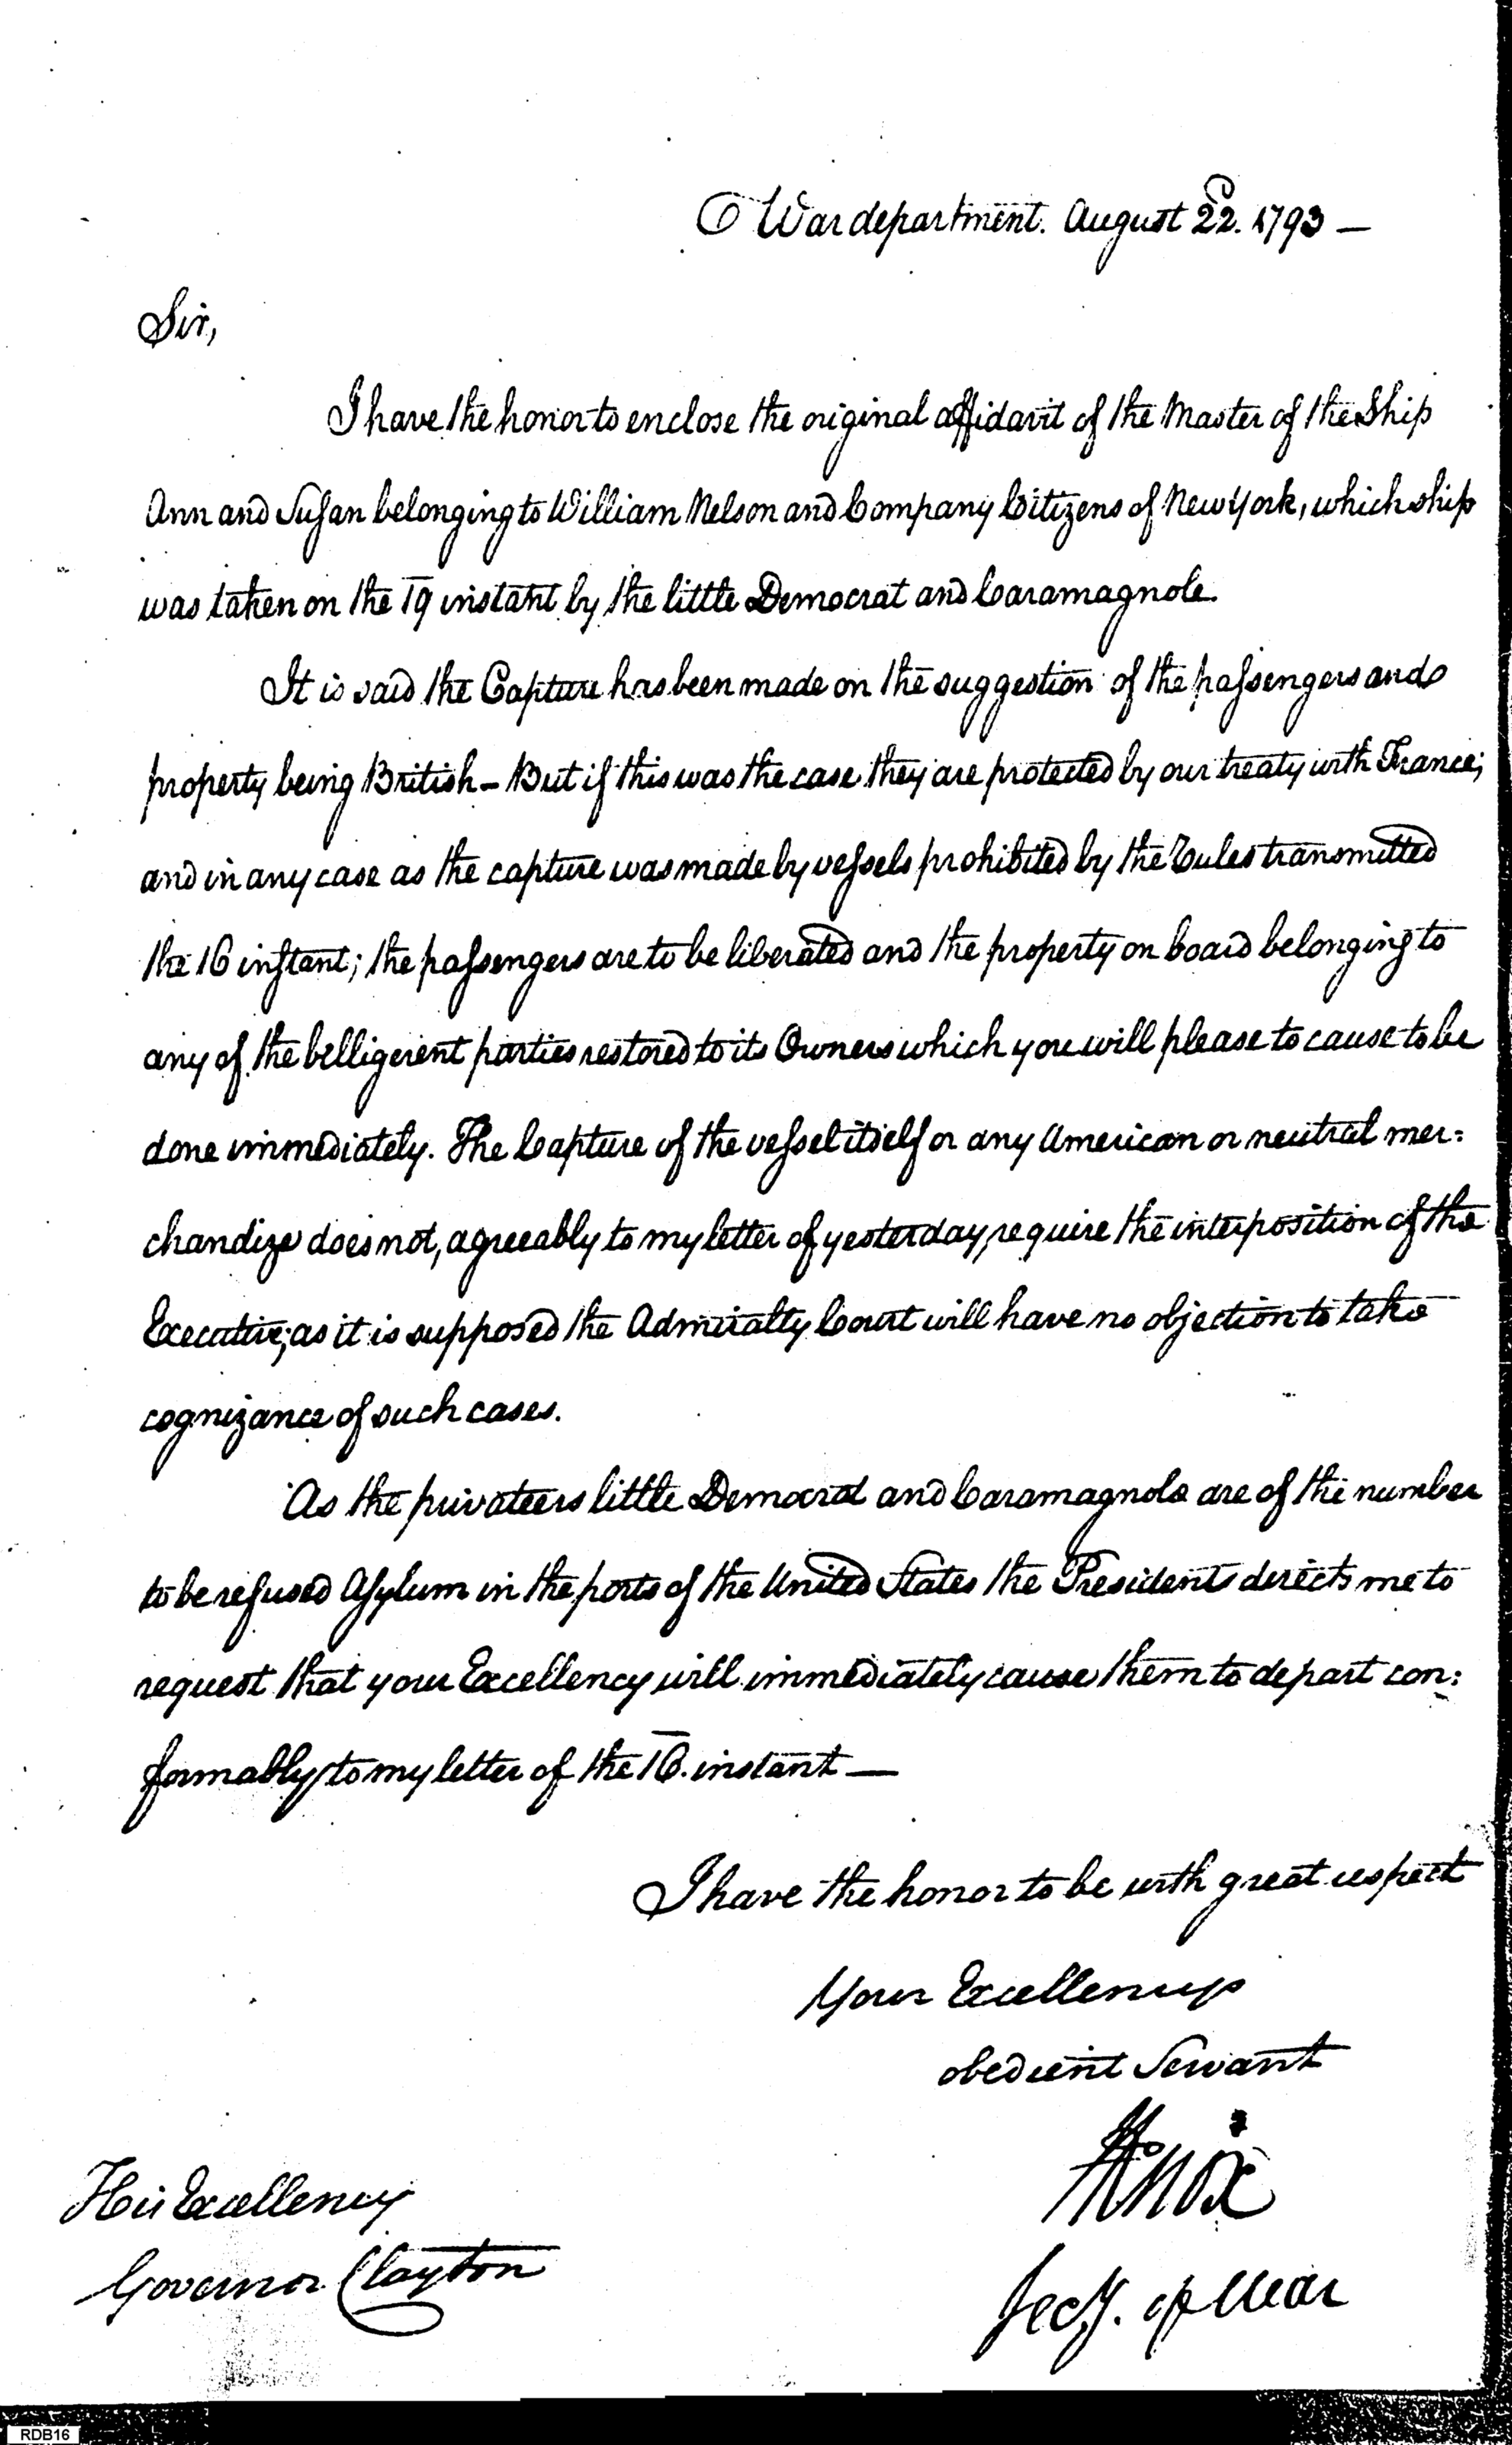 War department. August 22. 1793 —
Sir,
I have the honor to enclose the original affidavit of the Master of the Ship
Ann and Susan belonging to William Nelson and Company Citizens of New York, which ship
was taken on the 19 instant by the little Democrat and Caramagnole.
It is said the Capture has been made on the suggestion of the passengers and
property being British – But if this was the case they are protected by our treaty with France;
and in any case as the capture was made by vessels prohibited by the Rules transmitted
the 16 instant; the passengers are to be liberated and the property on board belonging to
any of the belligerent parties restored to its Owners which you will please to cause to be
done immediately. The Capture of the vessel itself or any American or neutral mer:
chandize does not, agreeably to my letter of yesterday, require the interposition of the
Executive; as it is supposed the Admiralty Court will have no objection to take
cognizance of such cases.
As the privateers little Democrat and Caramagnole are of the number
to be refused Asylum in the ports of the United States the President directs me to
request that your Excellency will immediately cause them to depart con:
formably to my letter of the 16. instant —
I have the honor to be with great respect
Your Excellencys
obedient Servant
HKnox
Secy. of War
His Excellency
Governor Clayton
RDB16